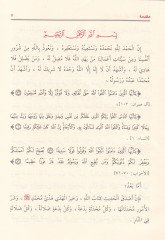 مقدمة
بسم الله الرحمن الرحيم
إن الحمد لله نحمده ونستعينه ونستغفره، ونعوذ بالله من شرور
أنفسنا ومن سيئات أعمالنا، من يهده الله فلا مضل له، ومن يضلل فلا
هادي له، وأشهد أن لا إله إلا الله وحده لا شريك له، وأشهد أن
محمدًا عبده ورسوله.
﴿يا أيها الذين آمنوا اتقوا الله حق تقاته ولا تموتن إلا وأنتم مسلمون﴾
[آل عمران: ١٠٢].
﴿يا أيها الناس اتقوا ربكم الذي خلقكم من نفس واحدة وخلق منها
زوجها وبث منهما رجالا كثيرا ونساء واتقوا الله الذي تساءلون به
والأرحام إن الله كان عليكم رقيبا﴾ [النساء: ١].
﴿يا أيها الذين آمنوا اتقوا الله وقولوا قولا سديدا يصلح لكم
أعمالكم ويغفر لكم ذنوبكم ومن يطع الله ورسوله فقد فاز فوزا عظيما﴾
[الأحزاب: ٧٠-٧١].
أما بعد:
فإن أصدق الحديث كتاب الله، وخير الهدي هدي محمد ﷺ، وشر
الأمور محدثاتها، وكل محدثة بدعة، وكل بدعة ضلالة، وكل ضلالة